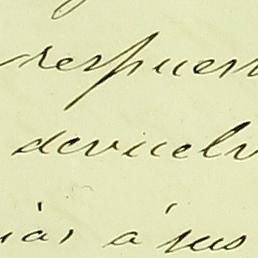 respuest
devuelv
ias á sus